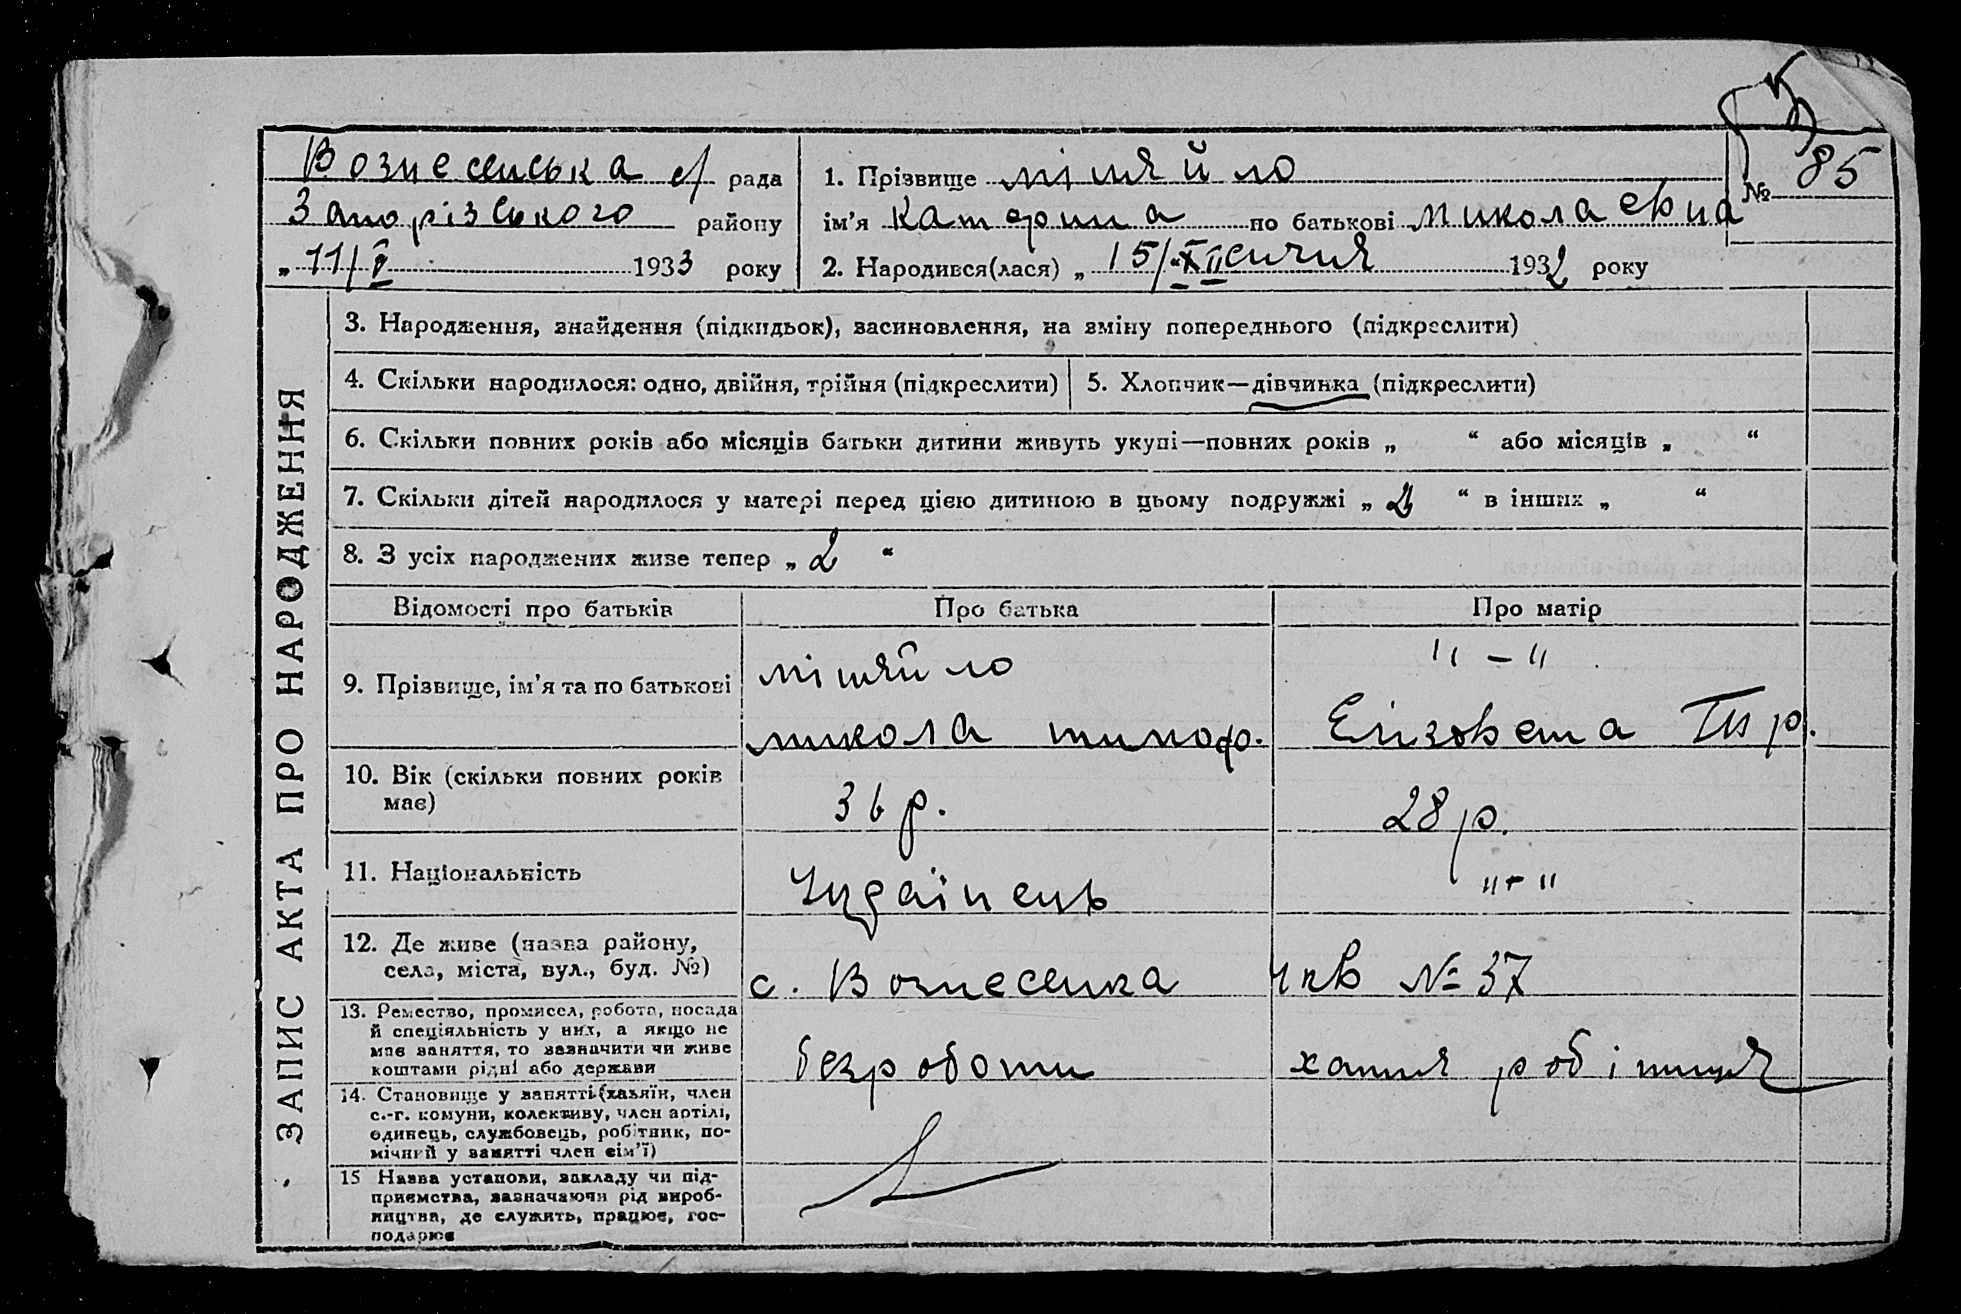 № 85
Вознесенська с/ рада
Запорізського району
„ 11/V 1933 року
1. Прізвище Міняйло
ім’я Катерина по батькові Миколаевна
2. Народився(лася) „ 15/XII 1932 року
ЗАПИС АКТА ПРО НАРОДЖЕННЯ
3. Народження, знайдення (підкидьок), засиновлення, на зміну попереднього (підкреслити)
4. Скільки народилося: одно, двійня, трійня (підкреслити)
5. Хлопчик—дівчинка (підкреслити)
6. Скільки повних років або місяців батьки дитини живуть укупі—повних років „ “ або місяців „ “
7. Скільки дітей народилося у матері перед цією дитиною в цьому подружжі „ “ в інших „ “
8. З усіх народжених живе тепер „ 2 “
Відомості про батьків Про батька Про матір
9. Прізвище, ім’я та по батькові
Міняйло " — "
Микола Тимоф. Елізовета
10. Вік (скільки повних років
має)
36 р. 28 р.
11. Національність
Україінець " — "
12. Де живе (назва району,
села, міста, вул., буд. №)
с. Вознесенка № 37
13. Ремество, промисел, робота, посада
й спеціяльність у них, а якщо не
має заняття, то зазначити чи живе
коштами рідні або держави
безроботи хатня робітниця
14. Становище у занятті (хазяїн, член
с.-г. комуни, колективу, член артілі,
одинець, службовець, робітник, по-
мічний у занятті член сім’ї)
15 Назва установи, закладу чи під-
приємства, зазначаючи рід вироб-
ництва, де служить, працює, гос-
подарює